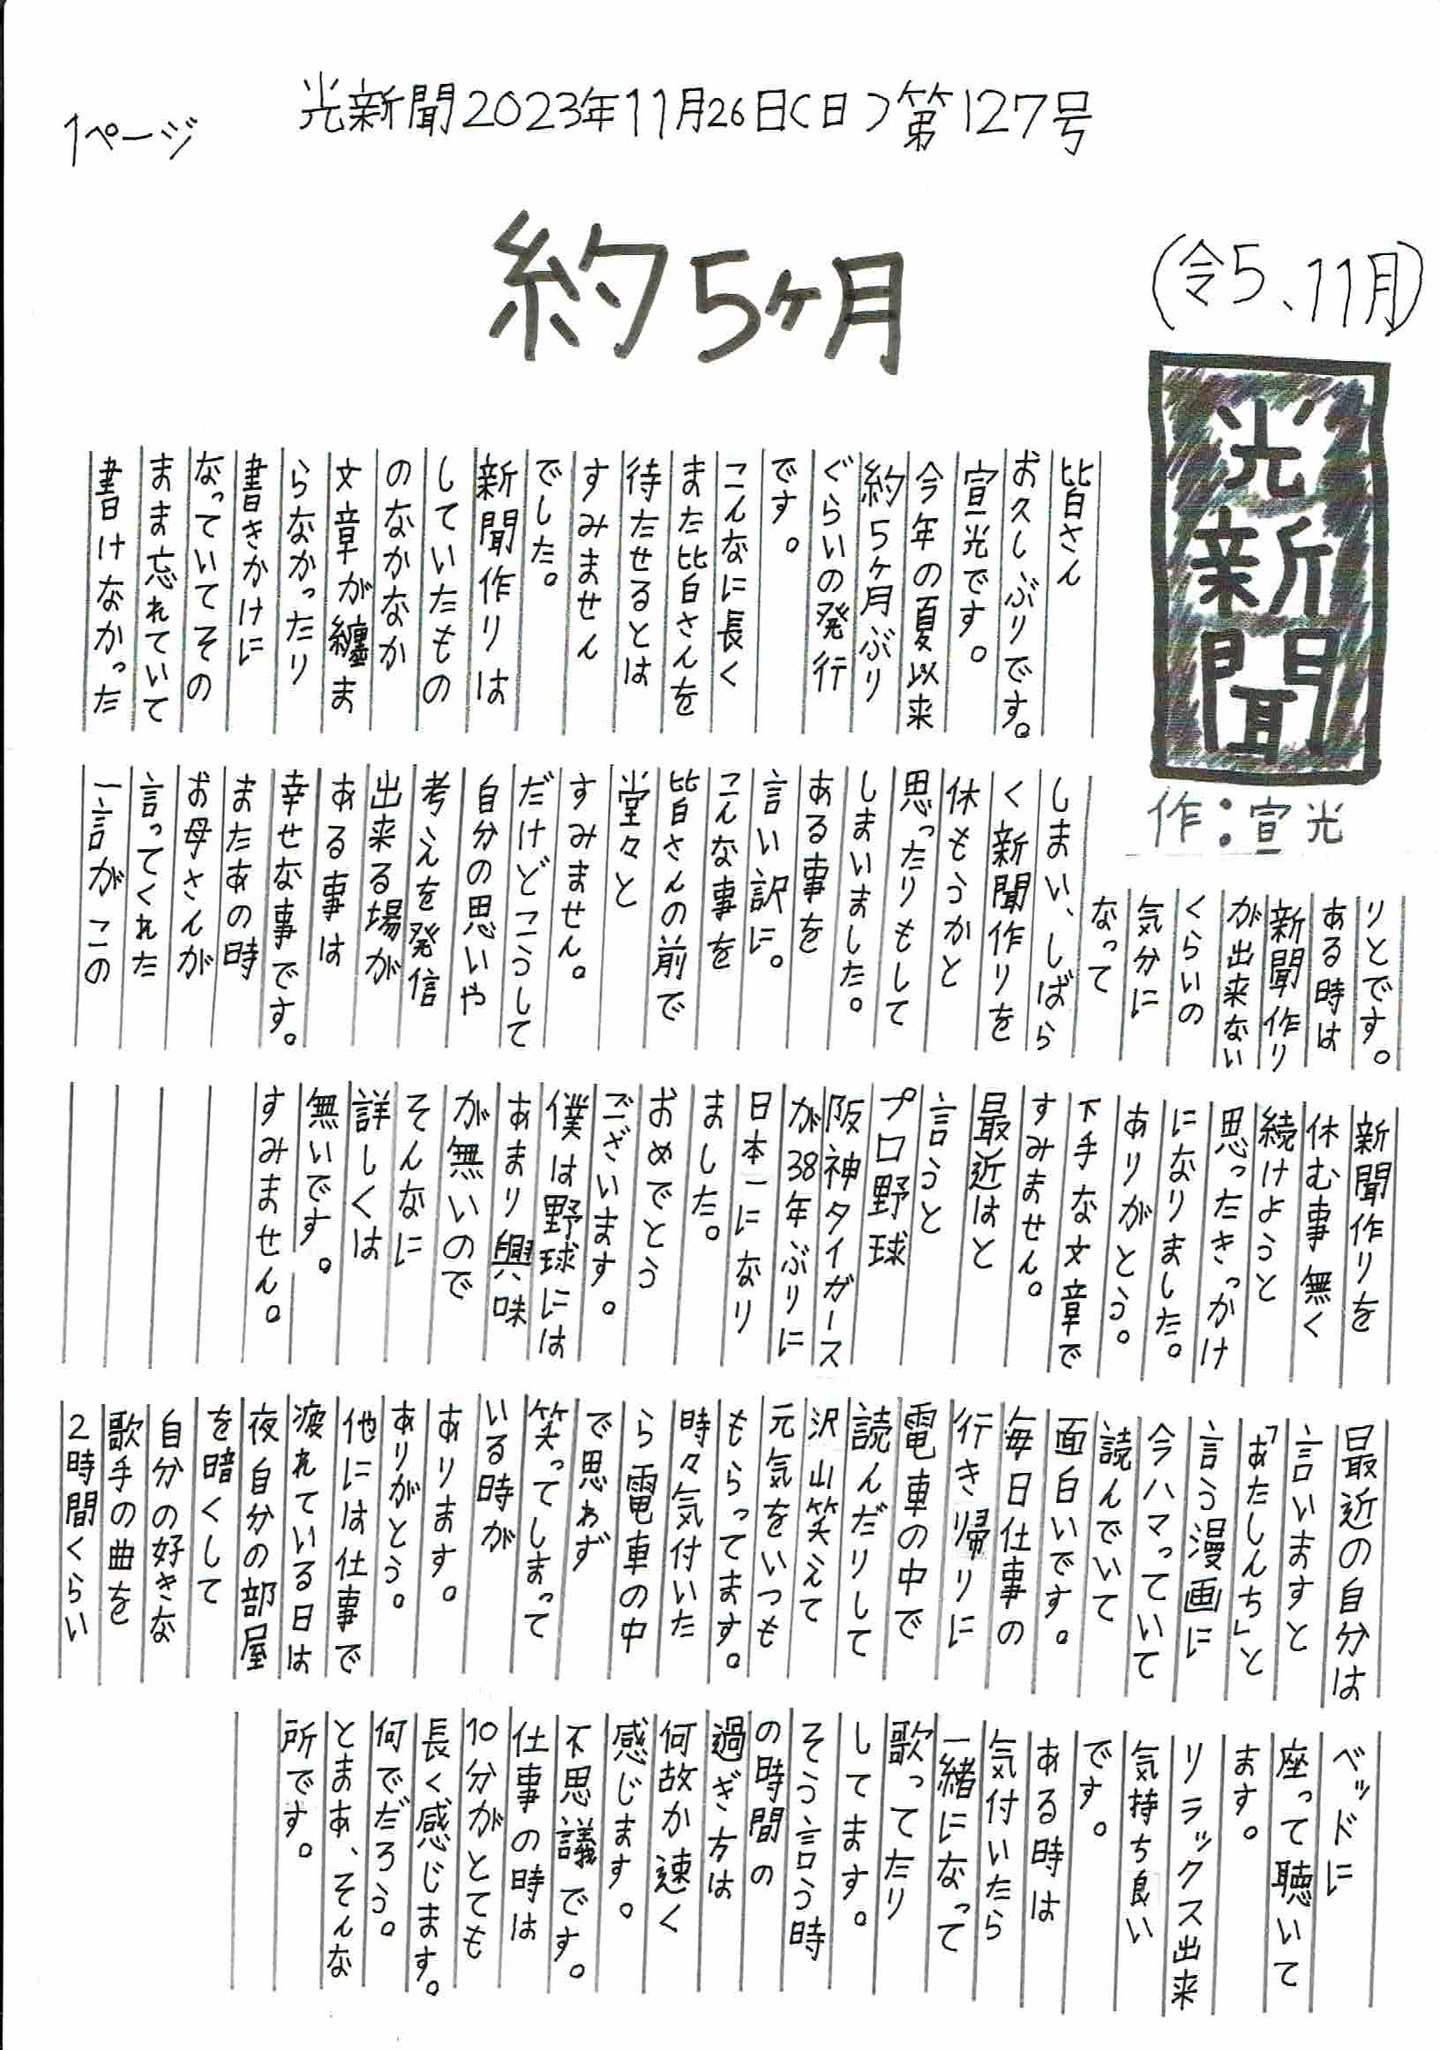 1ページ
光新聞2023年11月26日(日)第127号
約5ヶ月
(令5、11月)
光新聞
作:宣光
皆さん
お久しぶりです。
宣光です。
今年の夏以来
約5ヶ月ぶり
ぐらいの発行
です。
こんなに長く
また皆さんを
待たせるとは
すみません
でした。
新聞作りは
していたもの
のなかなか
文章が纏ま
らなかったり
書きかけに
なっていてその
まま忘れていて
書けなかった
りとです。
ある時は
新聞作り
が出来ない
くらいの
気分に
なって
しまい、しばら
く新聞作りを
休もうかと
思ったりもして
しまいました。
ある事を
言い訳に。
こんな事を
皆さんの前で
堂々と
すみません。
だけどこうして
自分の思いや
考えを発信
出来る場が
ある事は
幸せな事です。
またあの時
お母さんが
言ってくれた
一言がこの
新聞作りを
休む事無く
続けようと
思ったきっかけ
になりました。
ありがとう。
下手な文章で
すみません。
最近はと
言うと
プロ野球
阪神タイガース
が38年ぶりに
日本一になり
ました。
おめでとう
ございます。
僕は野球には
あまり興味
が無いので
そんなに
詳しくは
無いです。
すみません。
最近の自分は
言いますと
「あたしンち」と
言う漫画に
今ハマっていて
読んでいて
面白いです。
毎日仕事の
行き帰りに
電車の中で
読んだりして
沢山笑えて
元気をいつも
もらってます。
時々気付いた
ら電車の中
で思わず
笑ってしまって
いる時が
あります。
ありがとう。
他には仕事で
疲れている日は
夜自分の部屋
を暗くして
自分の好きな
歌手の曲を
2時間くらい
ベッドに
座って聴いて
ます。
リラックス出来
気持ち良い
です。
ある時は
気付いたら
一緒になって
歌ってたり
してます。
そう言う時
の時間の
過ぎ方は
何故か速く
感じます。
不思議です。
仕事の時は
10分がとても
長く感じます。
何でだろう。
とまあ、そんな
所です。